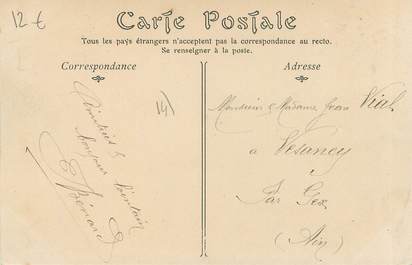 12 €
Carte Postale
Tous les pays étrangers n'acceptent pas la correspondance au recto.
Se renseigner à la poste.
Correspondance
Adresse
141
Amitiés &
Bonjour lointain
Monsieur & Madame Jean Vial
à Vesancy
Par Gex
(Ain)